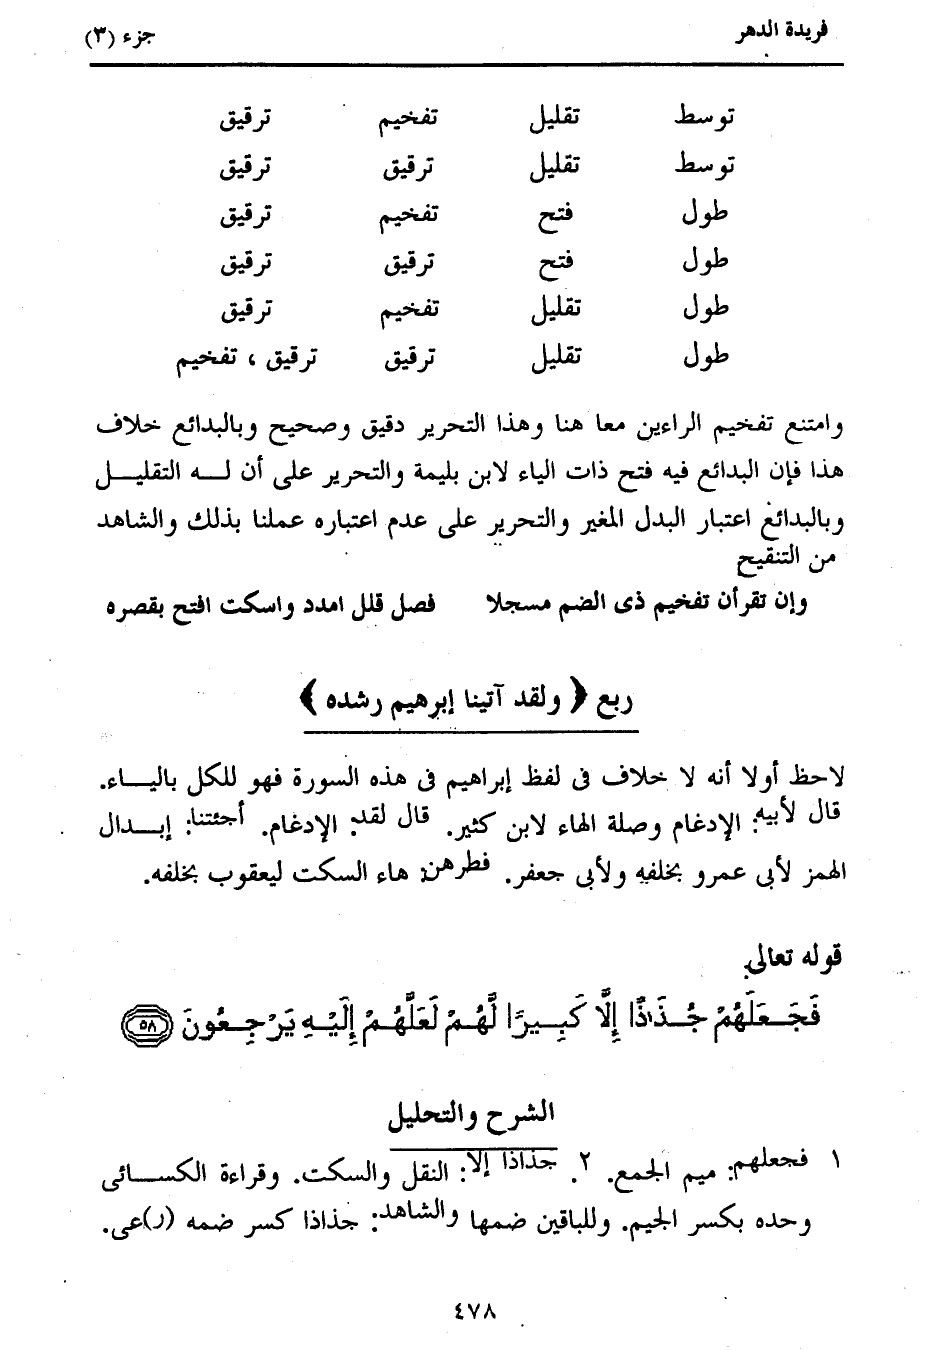 فريدة الدهر جزء (٣)
توسط تقليل تفخيم ترقيق
توسط تقليل ترقيق ترقيق
طول فتح تفخيم ترقيق
طول فتح ترقيق ترقيق
طول تقليل تفخيم ترقيق
طول تقليل ترقيق ترقيق ، تفخيم
وامتنع تفخيم الراءين معا هنا وهذا التحرير دقيق وصحيح وبالبدائع خلاف
هذا فإن البدائع فيه فتح ذات الياء لابن بليمة والتحرير على أن لـــه التقليـــل
وبالبدائع اعتبار البدل المغير والتحرير على عدم اعتباره عملنا بذلك والشاهد
من التنقيح
وإن تقرأن تفخيم ذى الضم مسجلا فصل قلل امدد واسكت افتح بقصره
ربع ﴿ ولقد آتينا إبرهيم رشده ﴾
لاحظ أولا أنه لا خلاف فى لفظ إبراهيم فى هذه السورة فهو للكل باليـــاء.
قال لأبيه: الإدغام وصلة الهاء لابن كثير. قال لقد: الإدغام. أجئتنا: إبـــدال
الهمز لأبى عمرو بخلفه ولأبى جعفر. فطرهن: هاء السكت ليعقوب بخلفه.
قوله تعالى:
فَجَعَلَهُمْ جُذَاذًا إِلَّا كَبِيرًا لَّهُمْ لَعَلَّهُمْ إِلَيْهِ يَرْجِعُونَ ٥٨
الشرح والتحليل
١ فجعلهم: ميم الجمع. ٢. جذاذا إلا: النقل والسكت. وقراءة الكســـائى
وحده بكسر الجيم. وللباقين ضمها والشاهد: جذاذا كسر ضمه (ر)عى.
٤٧٨